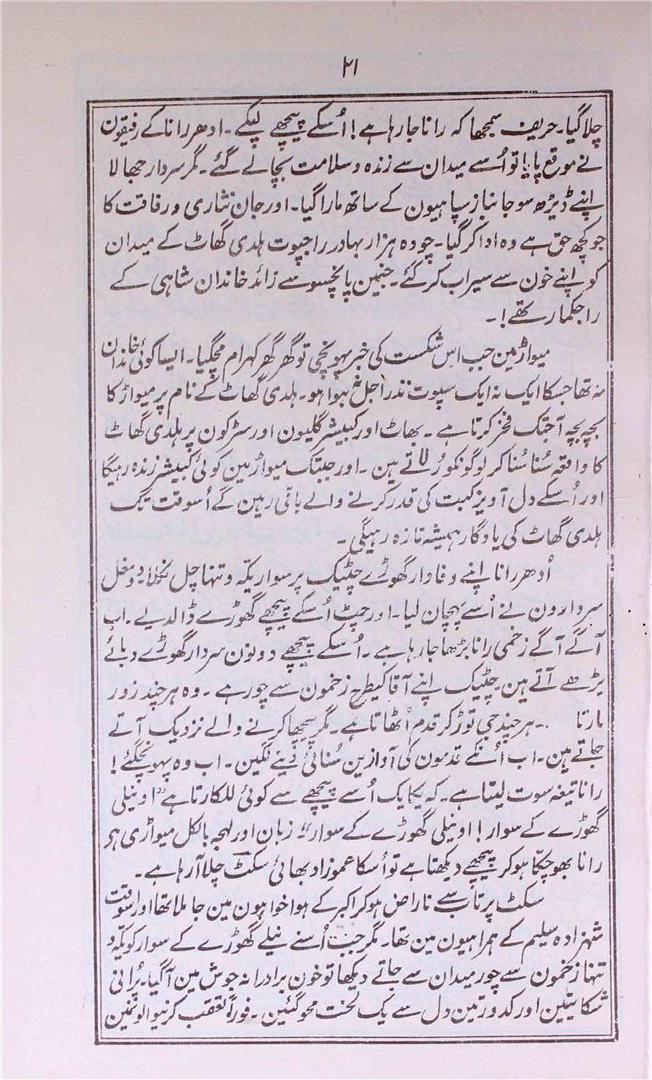 ۲۱
چلا گیا۔ حریف سمجھا کہ رانا جا رہا ہے! اُسکے پیچھے لپکے۔ ادھر رانا کے رفیقون
نے موقع پایا تو اُسے میدان سے زندہ و سلامت بچالے گئے۔ مگر سردار جھالا
اپنے ڈیڑھ سو جانباز سپاہیون کے ساتھ مارا گیا۔ اور جان نثاری و رفاقت کا
جو کچھ حق ہے وہ ادا کر گیا۔ چودہ ہزار بہادر راجپوت ہلدی گھاٹ کے میدان
کو اپنے خون سے سیراب کر گئے۔ جنمین پانچسو سے زائد خاندان شاہی کے
راجکمار تھے!۔
میواڑ مین جب اس شکست کی خبر پہونچی تو گھر گھر کہرام مچگیا۔ ایسا کوئی خاندان
نہ تھا جسکا ایک نہ ایک سپوت نذر اجل نہ ہوا ہو۔ ہلدی گھاٹ کے نام پر میواڑ کا
بچہ بچہ آجتک فخر کرتا ہے۔ بھاٹ اور کبیشر گلیون اور سڑکون پر ہلدی گھاٹ
کا واقعہ سُنا سُنا کر لوگونکو رُلاتے ہین۔ اور جبتک میواڑ مین کوئی کبیشر زندہ رہیگا
اور اُسکے دل آویز کبت کی قدر کرنے والے باقی رہین گے اُسوقت تک
ہلدی گھاٹ کی یادگار ہمیشہ تازہ رہیگی۔
اُدھر رانا اپنے وفادار گھوڑے چٹیک پر سوار یکہ و تنہا چل نکلا۔ دو مغل
سردارون نے اُسے پہچان لیا۔ اور جھٹ اُسکے پیچھے گھوڑے ڈالدیے۔ اب
آگے آگے زخمی رانا بڑھا جا رہا ہے۔ اُسکے پیچھے دونون سردار گھوڑے دبائے
بڑھے آتے ہین۔ چٹیک اپنے آقا کیطرح زخمون سے چور ہے۔ وہ ہر چند زور
مارتا ۔ ہر چند جی توڑ کر قدم اُٹھاتا ہے۔ مگر پیچھا کرنے والے نزدیک آتے
جاتے ہین۔ اب اُنکے قدمون کی آوازین سُنائی دینے لگین۔ اب وہ پہونچگئے!
رانا تیغہ سونت لیتا ہے۔ کہ یکایک اُسے پیچھے سے کوئی للکارتا ہے "او نیلی
گھوڑے کے سوار! او نیلی گھوڑے کے سوار"۔ زبان اور لہجہ بالکل میواڑی ہی
رانا بھوچکا ہوکر پیچھے دیکھتا ہے تو اُسکا عموزاد بھائی سکٹ چلا آرہا ہے۔
سکٹ پرتاب سے ناراض ہوکر اکبر کے ہوا خواہون مین جا ملا تھا اور اُسوقت
شہزادہ سلیم کے ہمراہیون مین تھا۔ مگر جب اُسنے نیلے گھوڑے کے سوار کو یکہ و
تنہا زخمون سے چور میدان سے جاتے دیکھا تو خون برادرانہ جوش مین آگیا۔ پُرانی
شکایتین اور کدورتین دل سے یک لخت محو ہوگئین۔ فوراً تعقب کرنیوالونمین